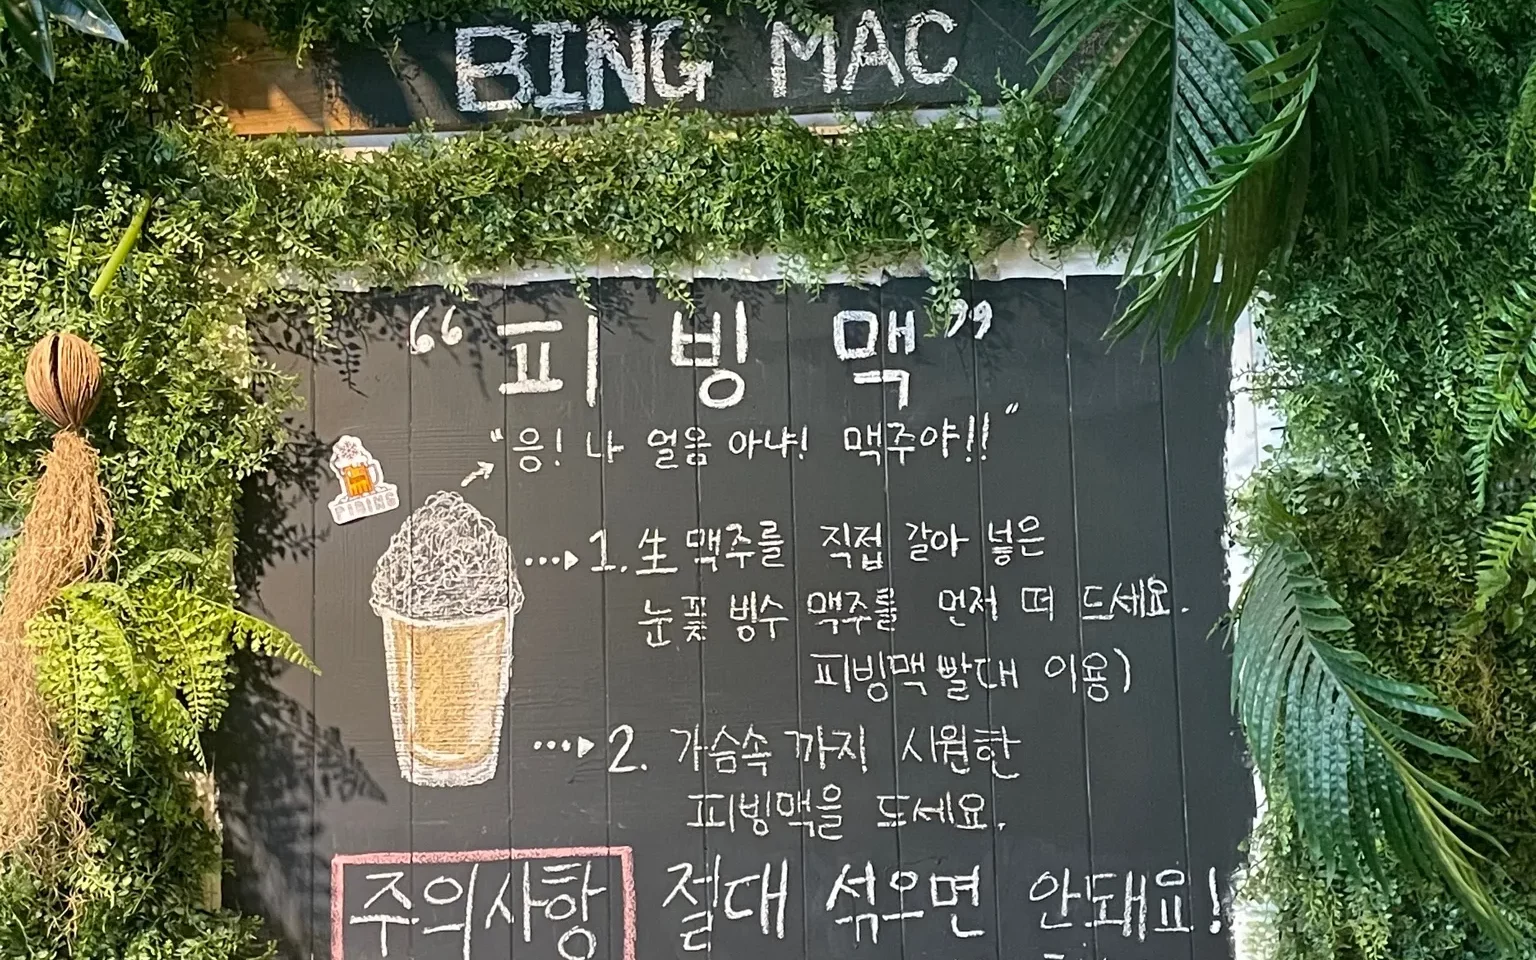 BING MAC
“피빙맥”
“응! 나 얼음 아냐! 맥주야!!”
PIBING
1. 生맥주를 직접 갈아 넣은
눈꽃 빙수 맥주를 먼저 떠 드세요.
피빙맥 빨대 이용)
2. 가슴속 까지 시원한
피빙맥을 드세요.
주의사항 절대 섞으면 안돼요!